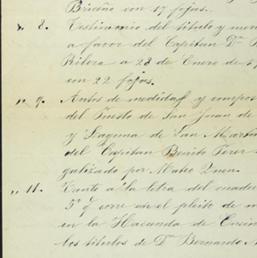 Briceño con 17 fojas.
" 8. Testimonio del título y
a favor del Capitan Dn
Ribera a 28 de Enero de
en 22 fojas.
" 9. Autos de medidas y compos
del Puesto de San Juan de
y Laguna de San Martin
del Capitan Benito Perez
galizado por Mateo
" 11. Tanto a la letra del cuader
5º q corre en el pleito de
en la Hacienda de
los títulos de D. Bernardo